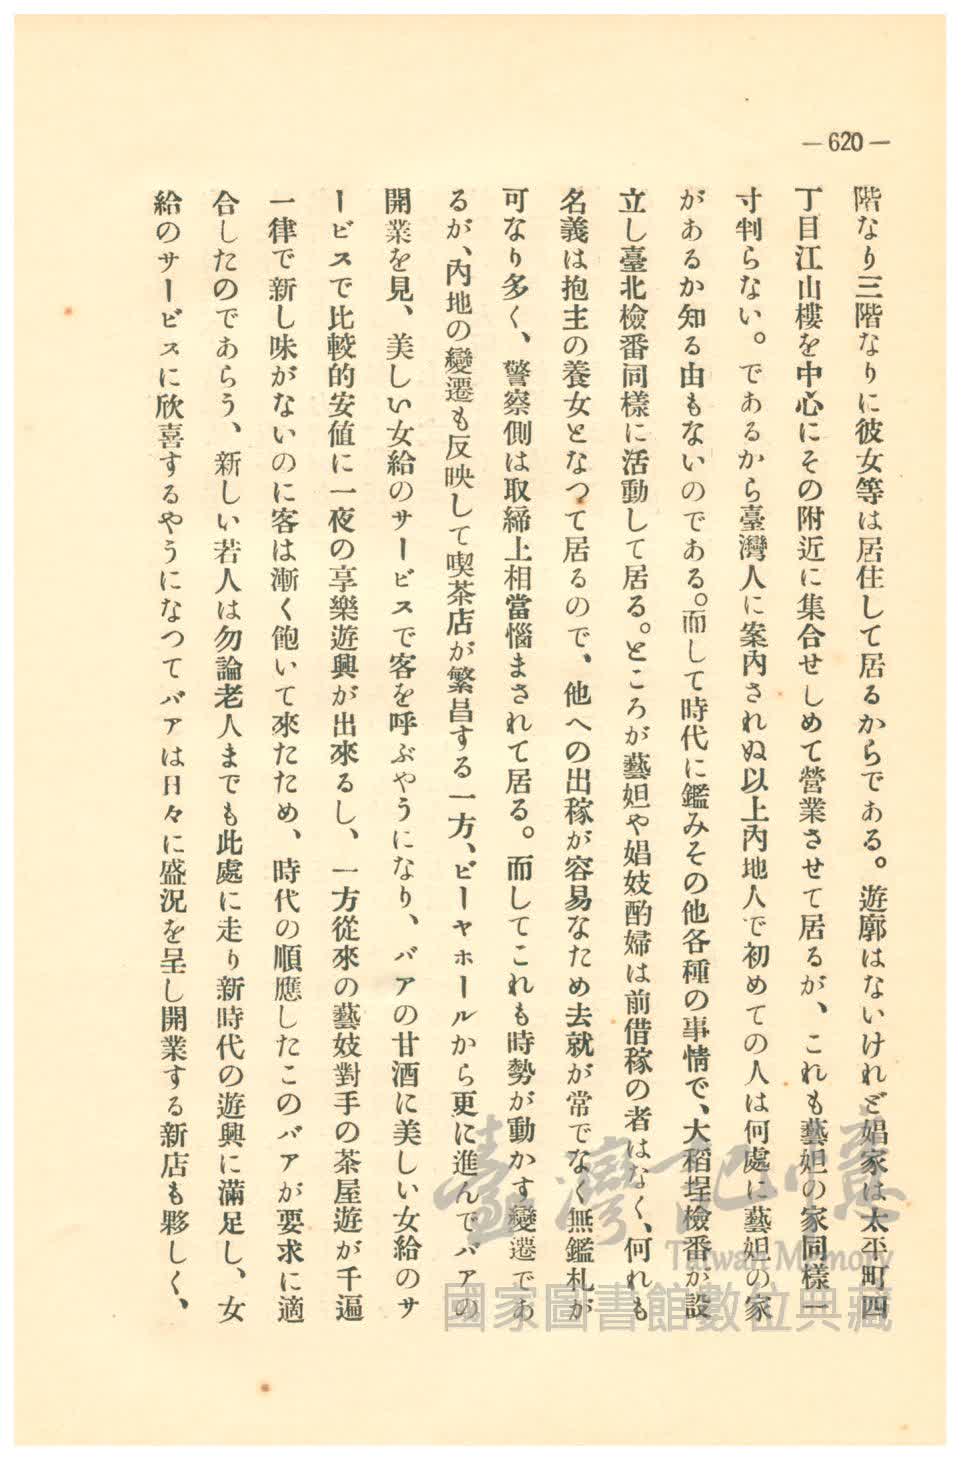 —620—
階なり三階なりに彼女等は居住して居るからである。遊廓はないけれど娼家は太平町四
丁目江山樓を中心にその附近に集合せしめて營業させて居るが、これも藝妲の家同樣一
寸判らない。であるから臺灣人に案內されぬ以上內地人で初めての人は何處に藝妲の家
があるか知る由もないのである。而して時代に鑑みその他各種の事情で、大稻埕檢番が設
立し臺北檢番同樣に活動して居る。ところが藝妲や娼妓酌婦は前借稼の者はなく、何れも
名義は抱主の養女となつて居るので、他への出稼が容易なため去就が常でなく無鑑札が
可なり多く、警察側は取締上相當惱まされて居る。而してこれも時勢が動かす變遷であ
るが、內地の變遷も反映して喫茶店が繁昌する一方、ビーヤホールから更に進んでバアの
開業を見、美しい女給のサービスで客を呼ぶやうになり、バアの甘酒に美しい女給のサ
ービスで比較的安値に一夜の享樂遊興が出來るし、一方從來の藝妓對手の茶屋遊が千遍
一律で新し味がないのに客は漸く飽いて來たため、時代の順應したこのバアが要求に適
合したのであらう、新しい若人は勿論老人までも此處に走り新時代の遊興に滿足し、女
給のサービスに欣喜するやうになつてバアは日々に盛況を呈し開業する新店も夥しく、
臺灣記憶
Taiwan Memory
國家圖書館數位典藏